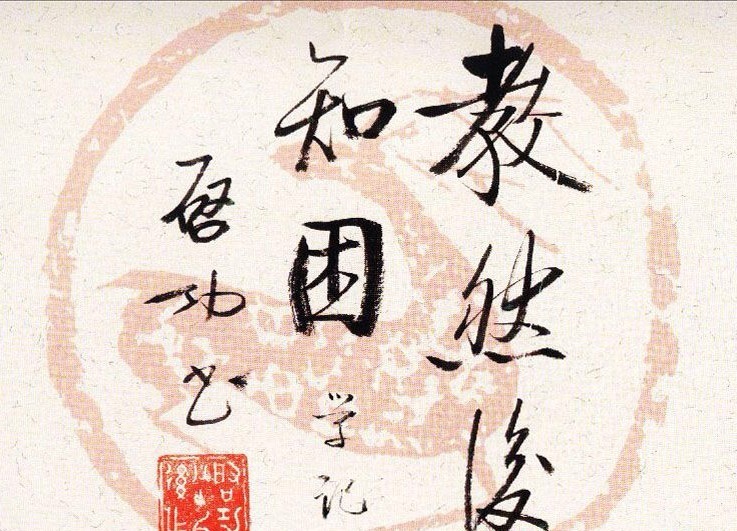 教然後
知困
学记
启功书